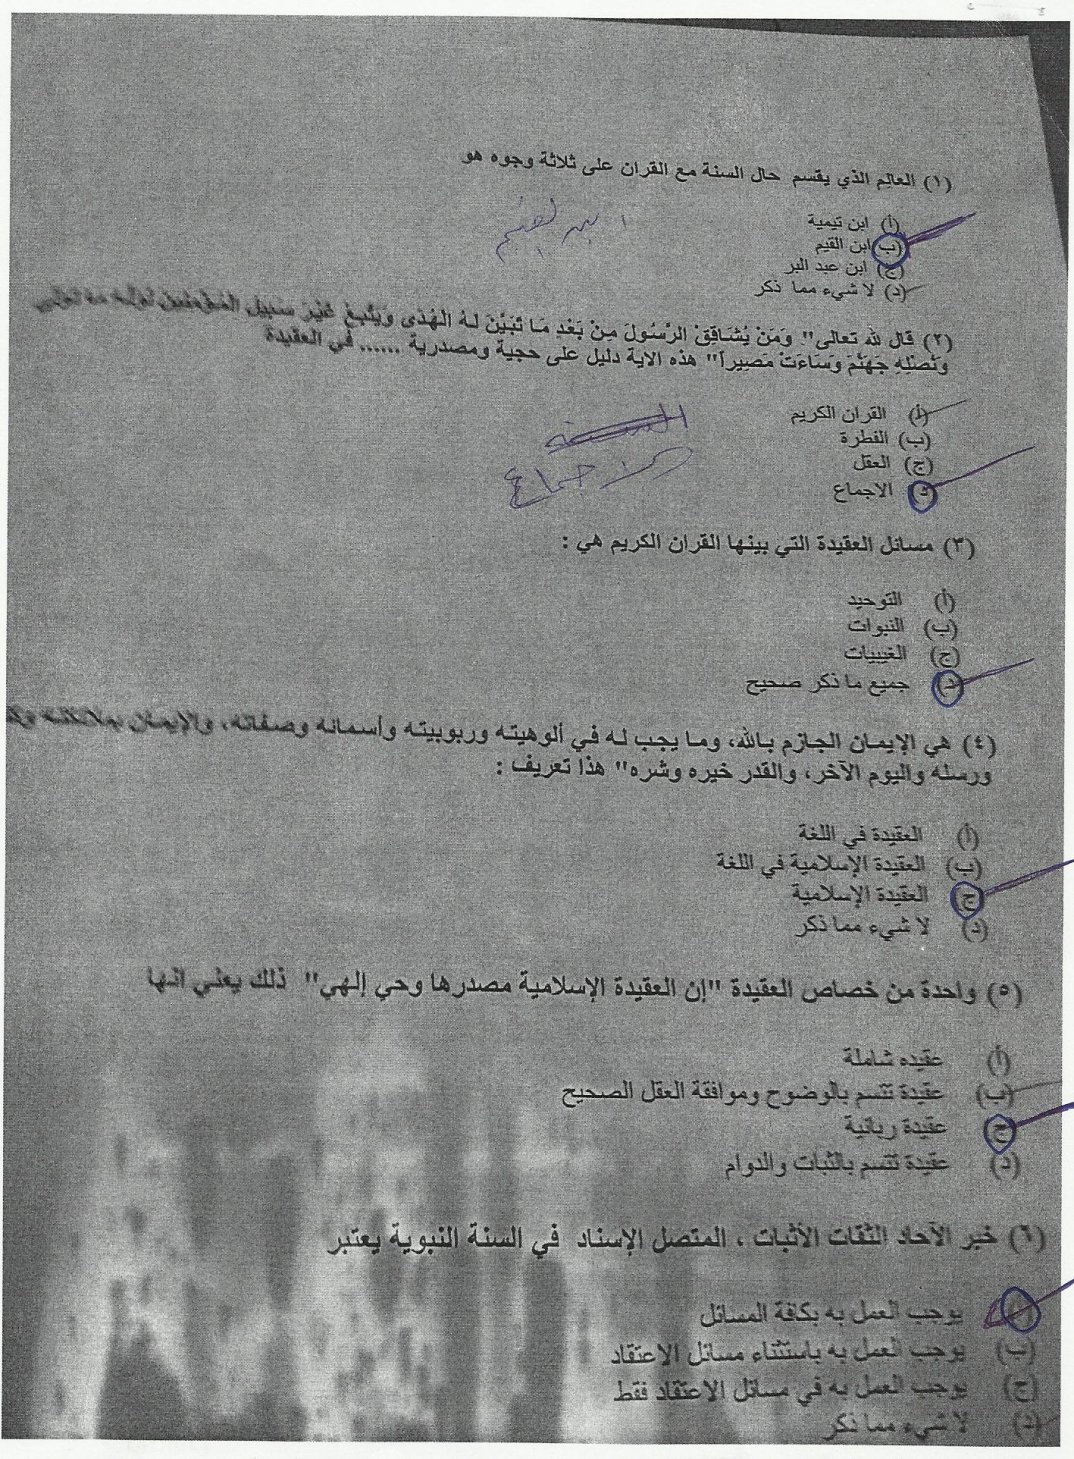 (١) العالم الذي يقسم حال السنة مع القران على ثلاثة وجوه هو
(أ) ابن تيمية
(ب) ابن القيم
(ج) ابن عبد البر
(د) لا شيء مما ذكر
ابن القيم
(٢) قال لله تعالى" وَمَنْ يُشَاقِقْ الرَّسُولَ مِنْ بَعْدِ مَا تَبَيَّنَ لَهُ الهُدَى وَيَتَّبِعْ غَيْرَ سَبِيلِ المُؤْمِنِينَ نُوَلِّهِ مَا تَوَلَّى
وَنُصْلِهِ جَهَنَّمَ وَسَاءَتْ مَصِيراً" هذه الاية دليل على حجية ومصدرية ...... في العقيدة
(أ) القران الكريم
(ب) الفطرة
(ج) العقل
(د) الاجماع
السنة
الاجماع
(٣) مسائل العقيدة التي بينها القران الكريم هي :
(أ) التوحيد
(ب) النبوات
(ج) الغيبيات
(د) جميع ما ذكر صحيح
(٤) هي الإيمان الجازم بالله، وما يجب له في ألوهيته وربوبيته وأسمائه وصفاته، والإيمان بملائكته
ورسله واليوم الآخر، والقدر خيره وشره" هذا تعريف :
(أ) العقيدة في اللغة
(ب) العقيدة الإسلامية في اللغة
(ج) العقيدة الإسلامية
(د) لا شيء مما ذكر
(٥) واحدة من خصاص العقيدة "إن العقيدة الإسلامية مصدرها وحي إلهي" ذلك يعني انها
(أ) عقيده شاملة
(ب) عقيدة تتسم بالوضوح وموافقة العقل الصحيح
(ج) عقيدة ربانية
(د) عقيدة تتسم بالثبات والدوام
(٦) خبر الآحاد الثقات الأثبات ، المتصل الإسناد في السنة النبوية يعتبر
(أ) يوجب العمل به بكافة المسائل
(ب) يوجب العمل به باستثناء مسائل الاعتقاد
(ج) يوجب العمل به في مسائل الاعتقاد فقط
(د) لا شيء مما ذكر